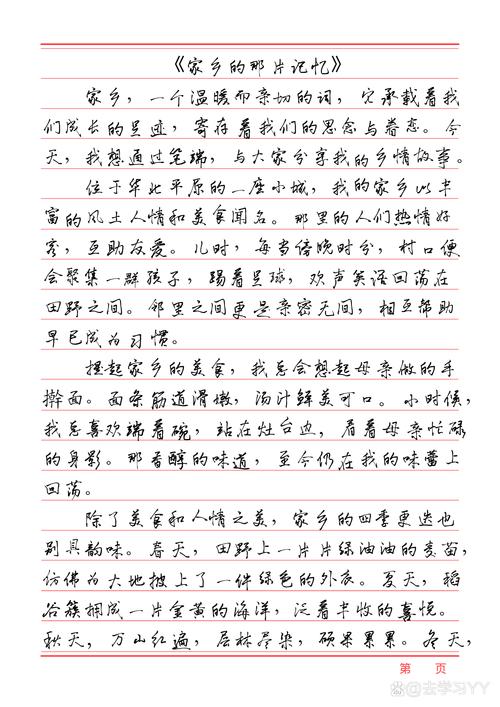 《家乡的那片记忆》
家乡，一个温暖而亲切的词，它承载着我
们成长的足迹，寄存着我们的思念与眷恋。今
天，我想通过笔端，与大家分享我的乡情故事。
位于华北平原的一座小城，我的家乡以丰
富的风土人情和美食闻名。那里的人们热情好
客，互助友爱。儿时，每当傍晚时分，村口便
会聚集一群孩子，踢着足球，欢声笑语回荡在
田野之间。邻里之间更是亲密无间，相互帮助
早已成为习惯。
提起家乡的美食，我总会想起母亲做的手
擀面。面条筋道滑嫩，汤汁鲜美可口。小时候，
我总喜欢端着碗，站在灶台边，看着母亲忙碌
的身影。那香醇的味道，至今仍在我的味蕾上
回荡。
除了美食和人情之美，家乡的四季更迭也
别具韵味。春天，田野上一片片绿油油的麦苗，
仿佛为大地披上了一件绿色的外衣。夏天，稻
谷簇拥成一片金黄的海洋，泛着丰收的喜悦。
秋天，万山红遍，层林尽染，硕果累累。冬天，
第 页
@去学习YY